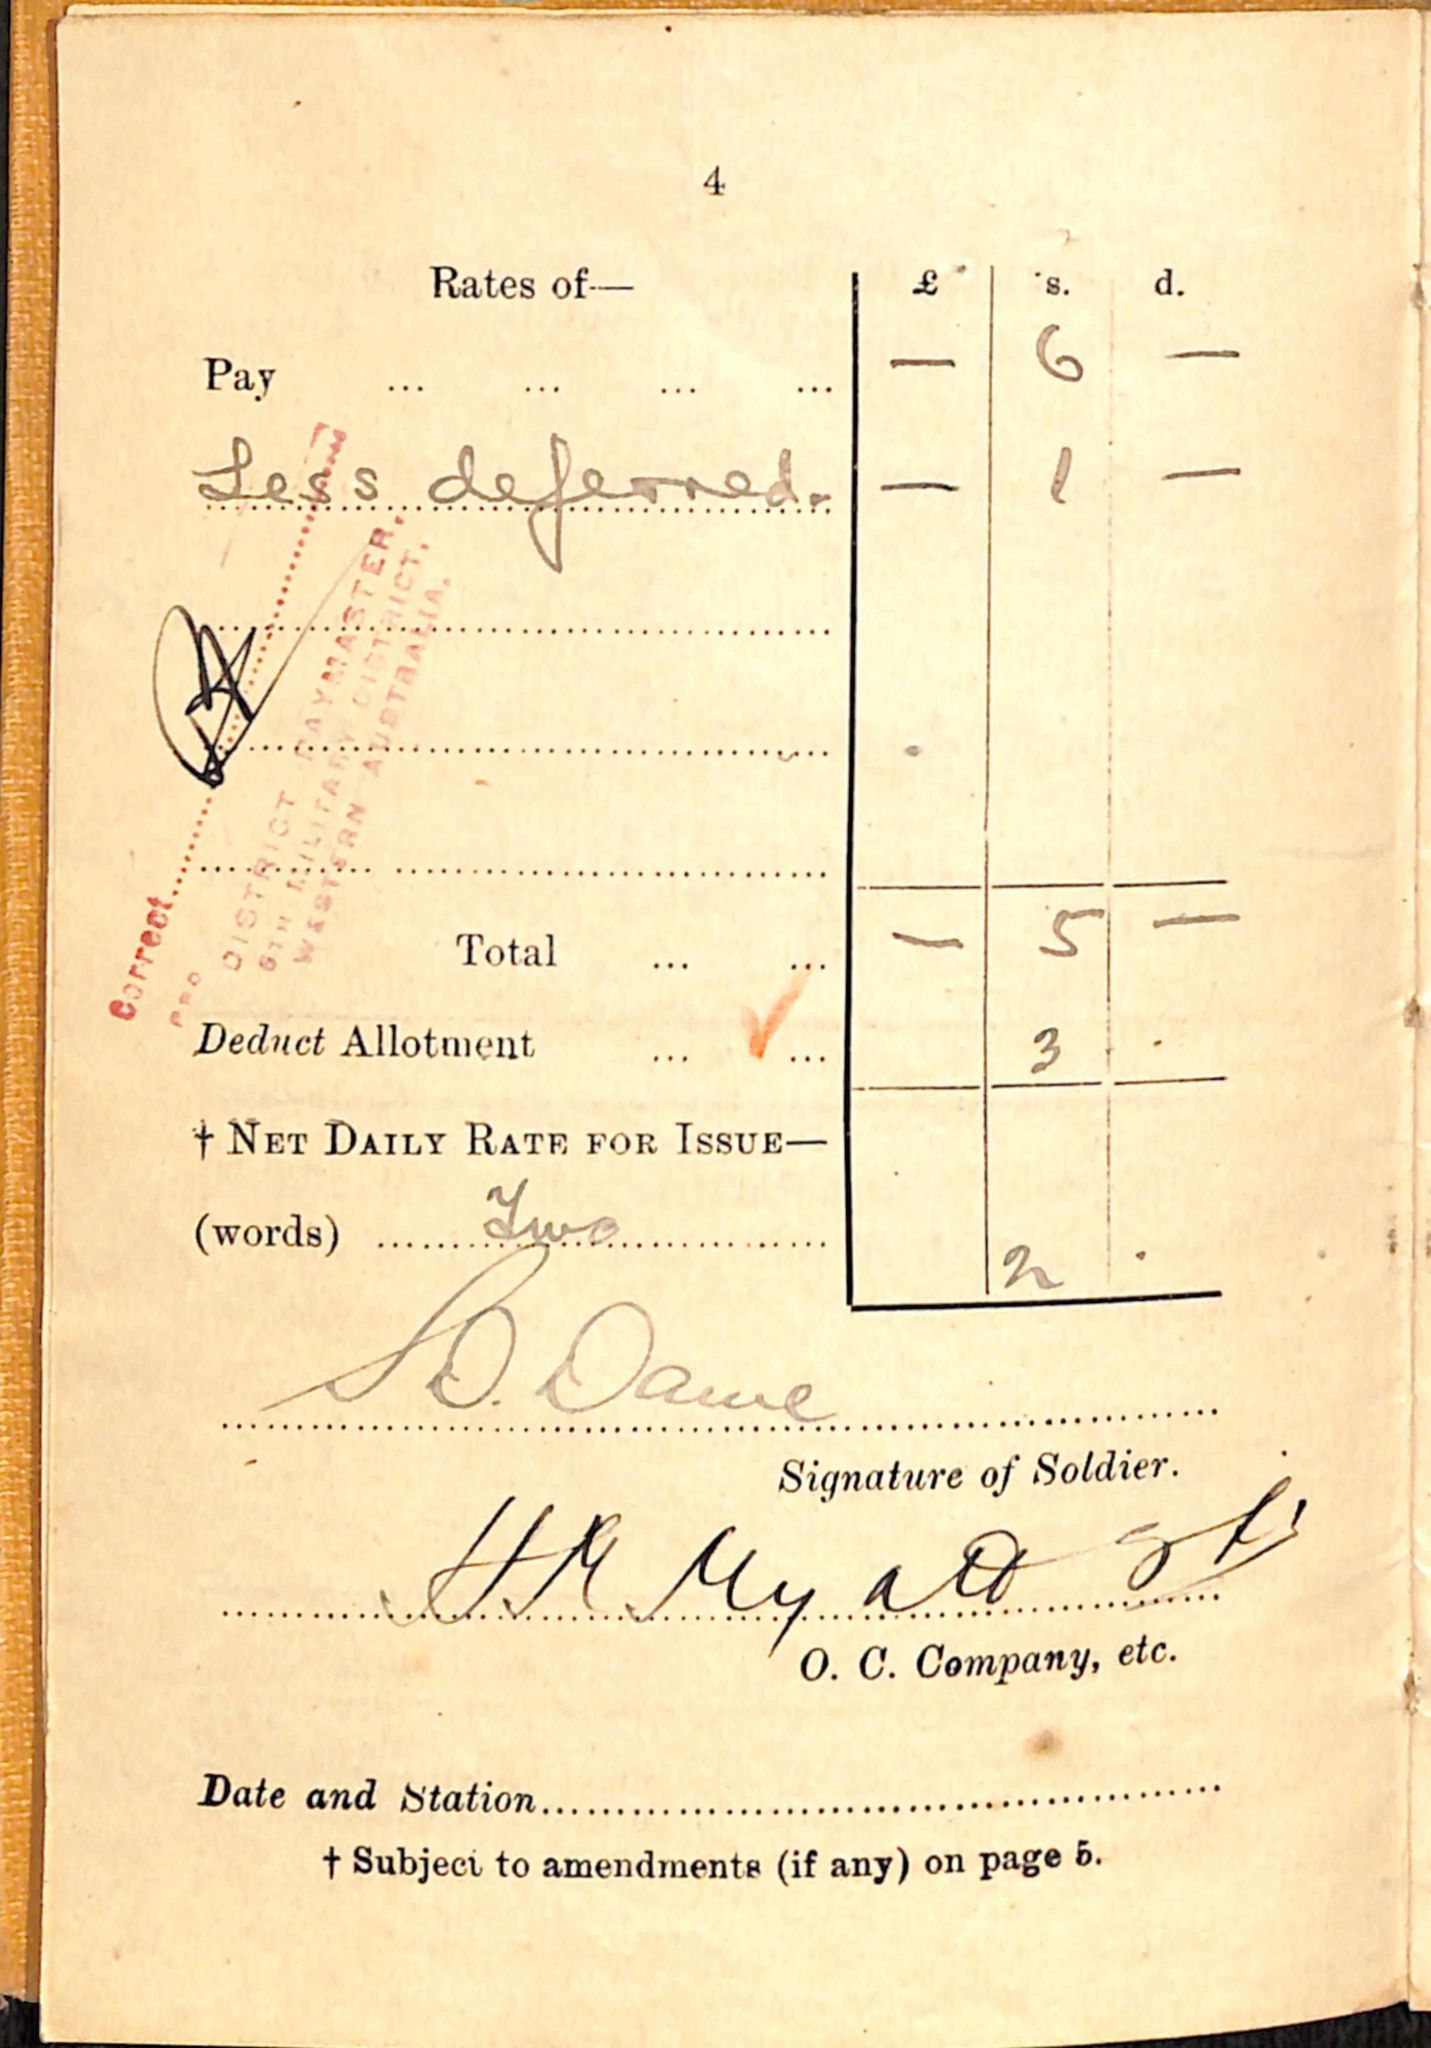 4
Rates of— £ s. d.
Pay ... ... ... ... — 6 —
Less deferred. — 1 —
Total ... ... — 5 —
Deduct Allotment ... ... 3 .
† NET DAILY RATE FOR ISSUE—
(words) Two 2 .
Correct
PRO
DISTRICT PAYMASTER,
5TH MILITARY DISTRICT,
WESTERN AUSTRALIA.
S.D. Dawe
Signature of Soldier.
O. C. Company, etc.
Date and Station
† Subject to amendments (if any) on page 5.